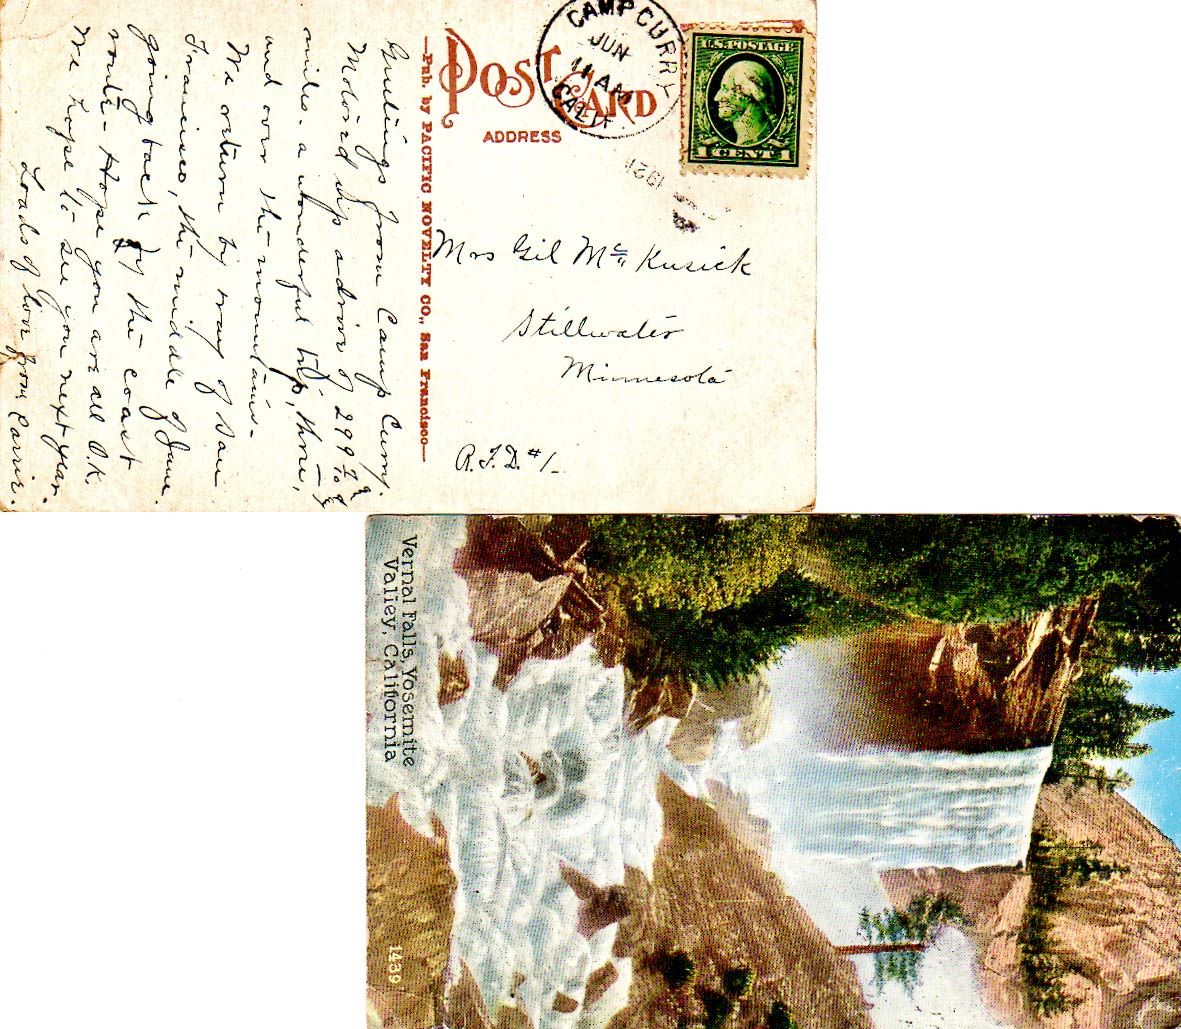 POST CARD
ADDRESS
CAMP CURRY
JUN
11 AM
1921
CALIF.
U.S. POSTAGE
1 CENT 1
—Pub. by PACIFIC NOVELTY CO., San Francisco—
Greetings from Camp Curry.
Motored up a drive of 299 7/10
miles. a wonderful trip, thru,
and over the mountains.
We return by way of San
Francisco, the middle of June
going back by the coast
route - Hope you are all O.K.
We hope to see you next year.
Loads of love from Carrie.
Mrs Gil McKusick
Stillwater
Minnesota
R.F.D. #1
Vernal Falls, Yosemite
Valley, California
1439